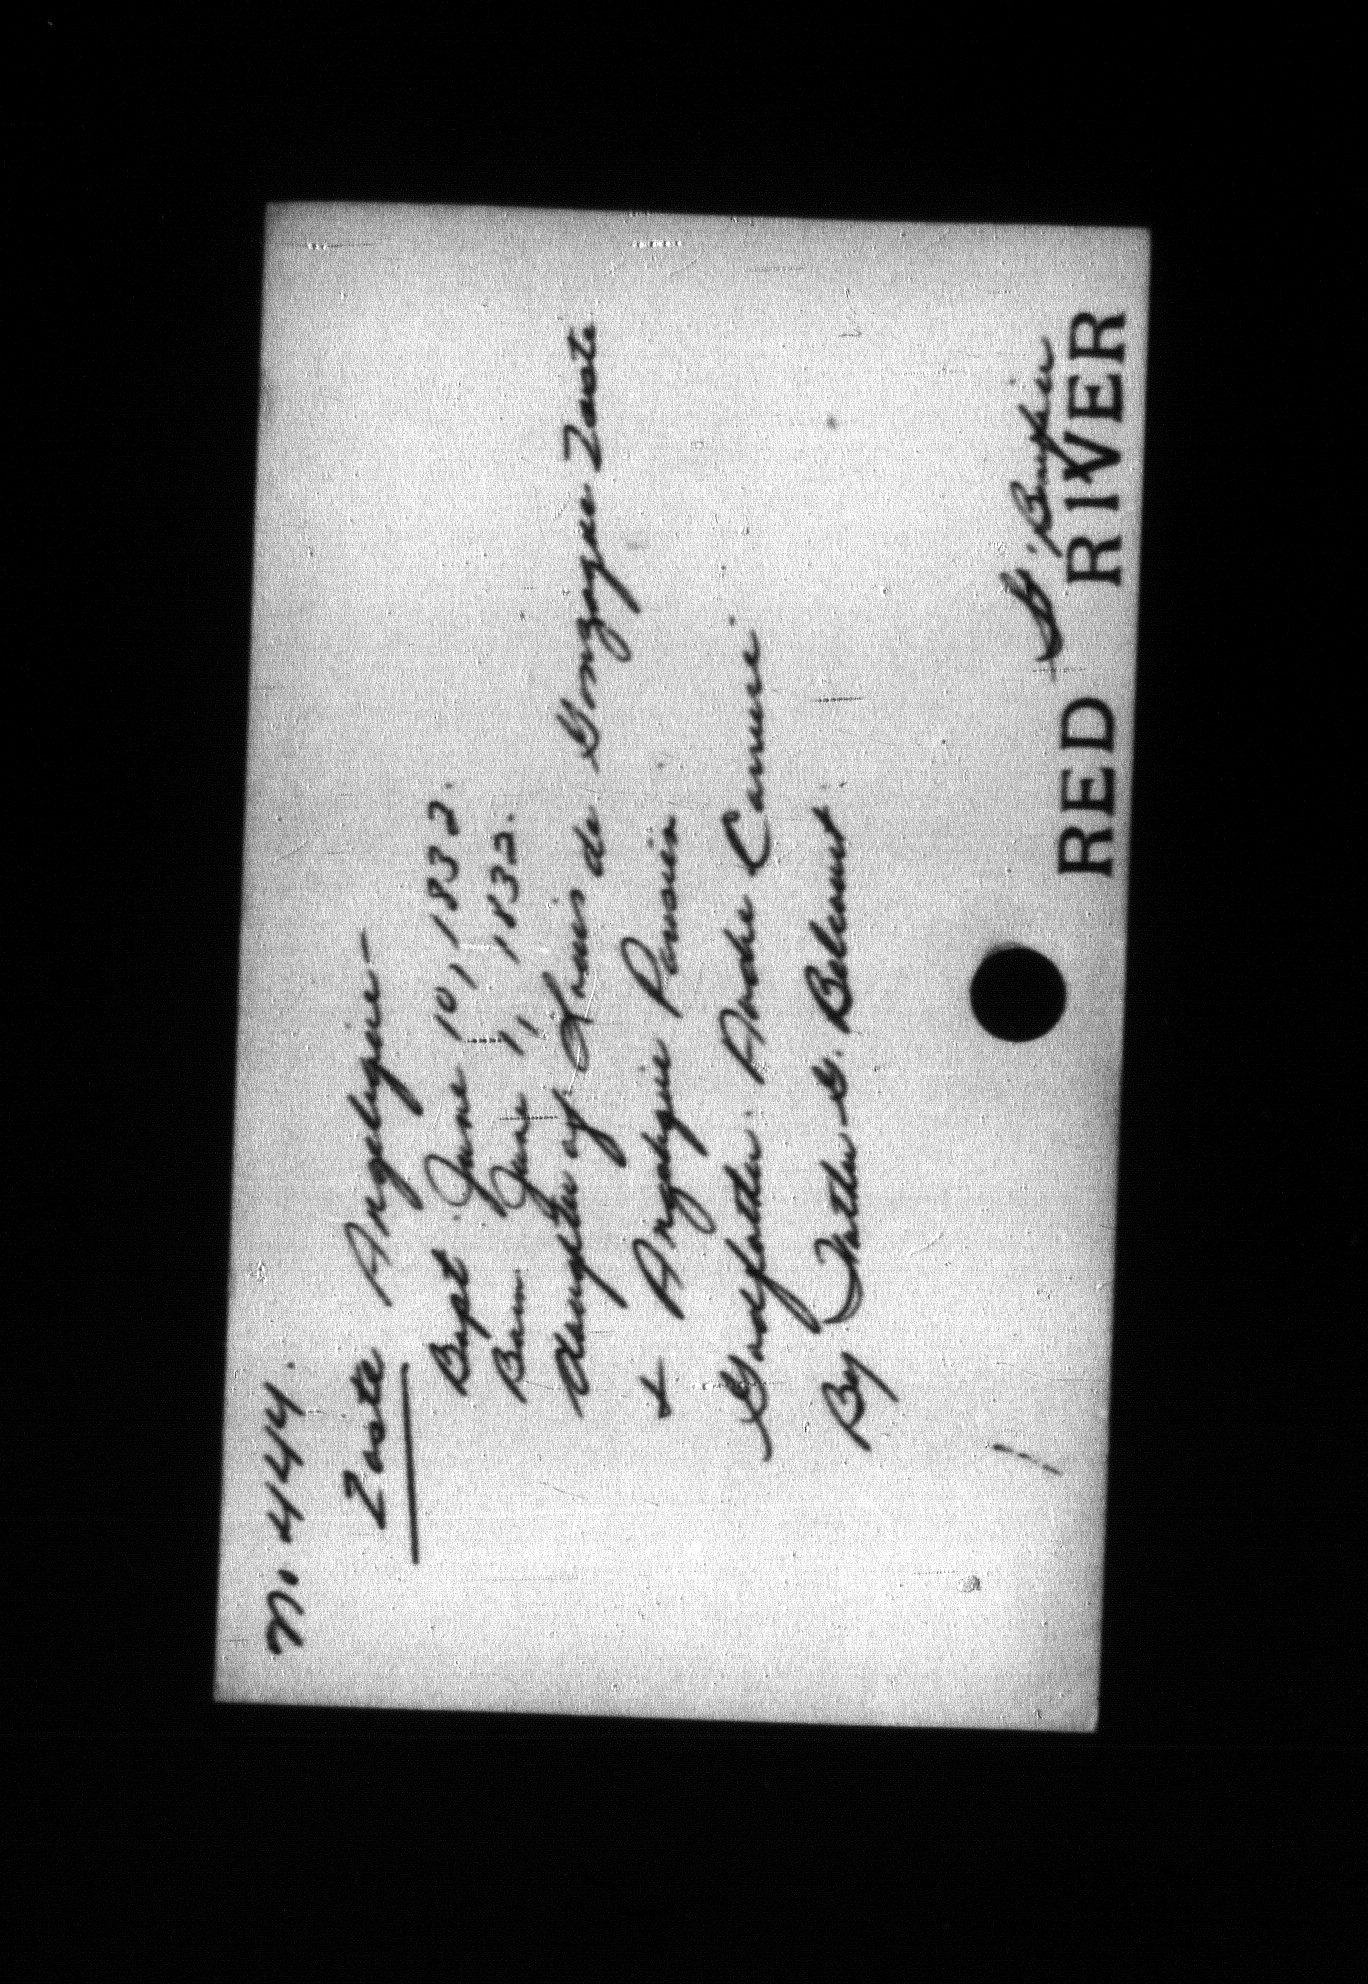 M. 444.
Zaste Angelique -
Bapt. June 10, 1832.
Born June 1, 1832.
Daughter of Louis de Gonzague Zaste
& Angelique Parisien
Godfather. Andre Carrière
By Father G. Belcourt.
St. Boniface
RED RIVER